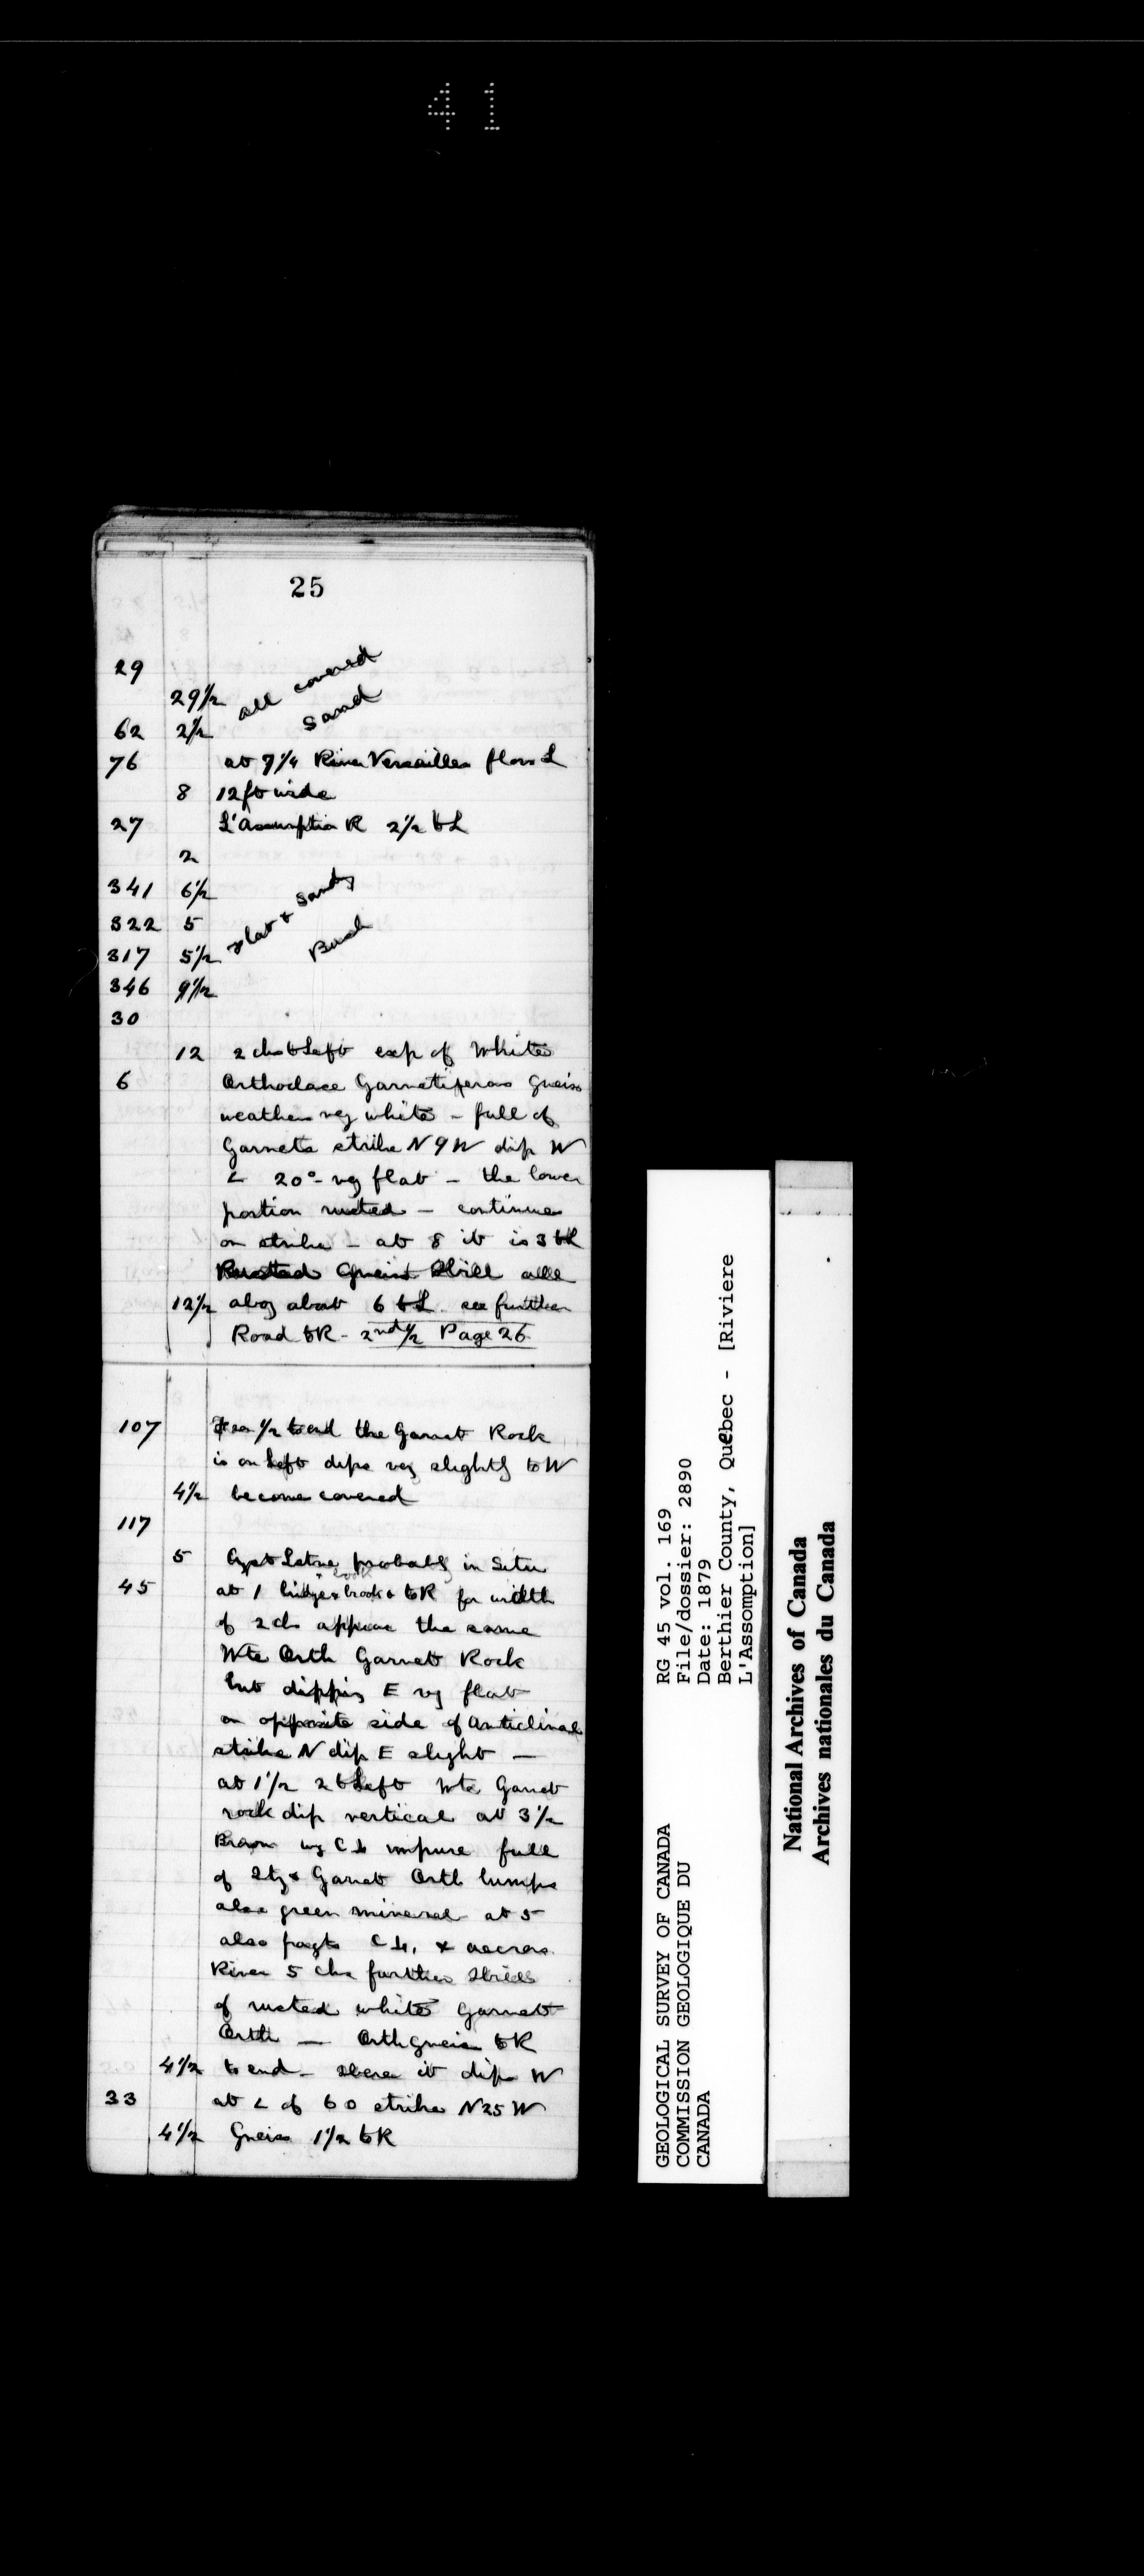 41
25
29
29½ all covered
62 2½ Sand
76 at 7¼ River Versailles flows L
8 12 ft wide
27 L'Assumption R 2½ to L
2
341 6½
322 5 flat & sandy
317 5½ Bush
346 9½
30
12 2 chs to Left exp of White
6 Orthoclase Garnetiferous Gneiss
weathers very white – full of
Garnets strike N 9 W dip W
< 20° – very flat – the lower
portion rusted – continues
on strike – at 8 it is 3 to L
Rusted Gneiss Still all
12½ along about 6 to L see further
Road to R – 2nd ½ Page 26
107 ½ to end the Garnet Rock
is on Left dips very slightly to W
4½ become covered
117
5 Cryst Lstne probably in Situ
45 at 1 bridge & brook & to R for width
of 2 chs appears the same
Wte Orth Garnet Rock
but dipping E vy flat
on opposite side of Anticlinal
strike N dip E slight —
at 1½ 2 to Left Wte Garnet
rock dip vertical at 3½
Brown C L impure full
of Qtz & Garnet Orth lumps
also green mineral at 5
also fragts C L, & across
River 5 chs further
of rusted white Garnet
Orth — Orth gneiss to R
4½ to end – where it dips W
33 at < of 60 strike N 25 W
4½ Gneiss 1½ to R
GEOLOGICAL SURVEY OF CANADA
COMMISSION GEOLOGIQUE DU
CANADA
RG 45 vol. 169
File/dossier: 2890
Date: 1879
Berthier County, Quebec - [Riviere
L'Assomption]
National Archives of Canada
Archives nationales du Canada